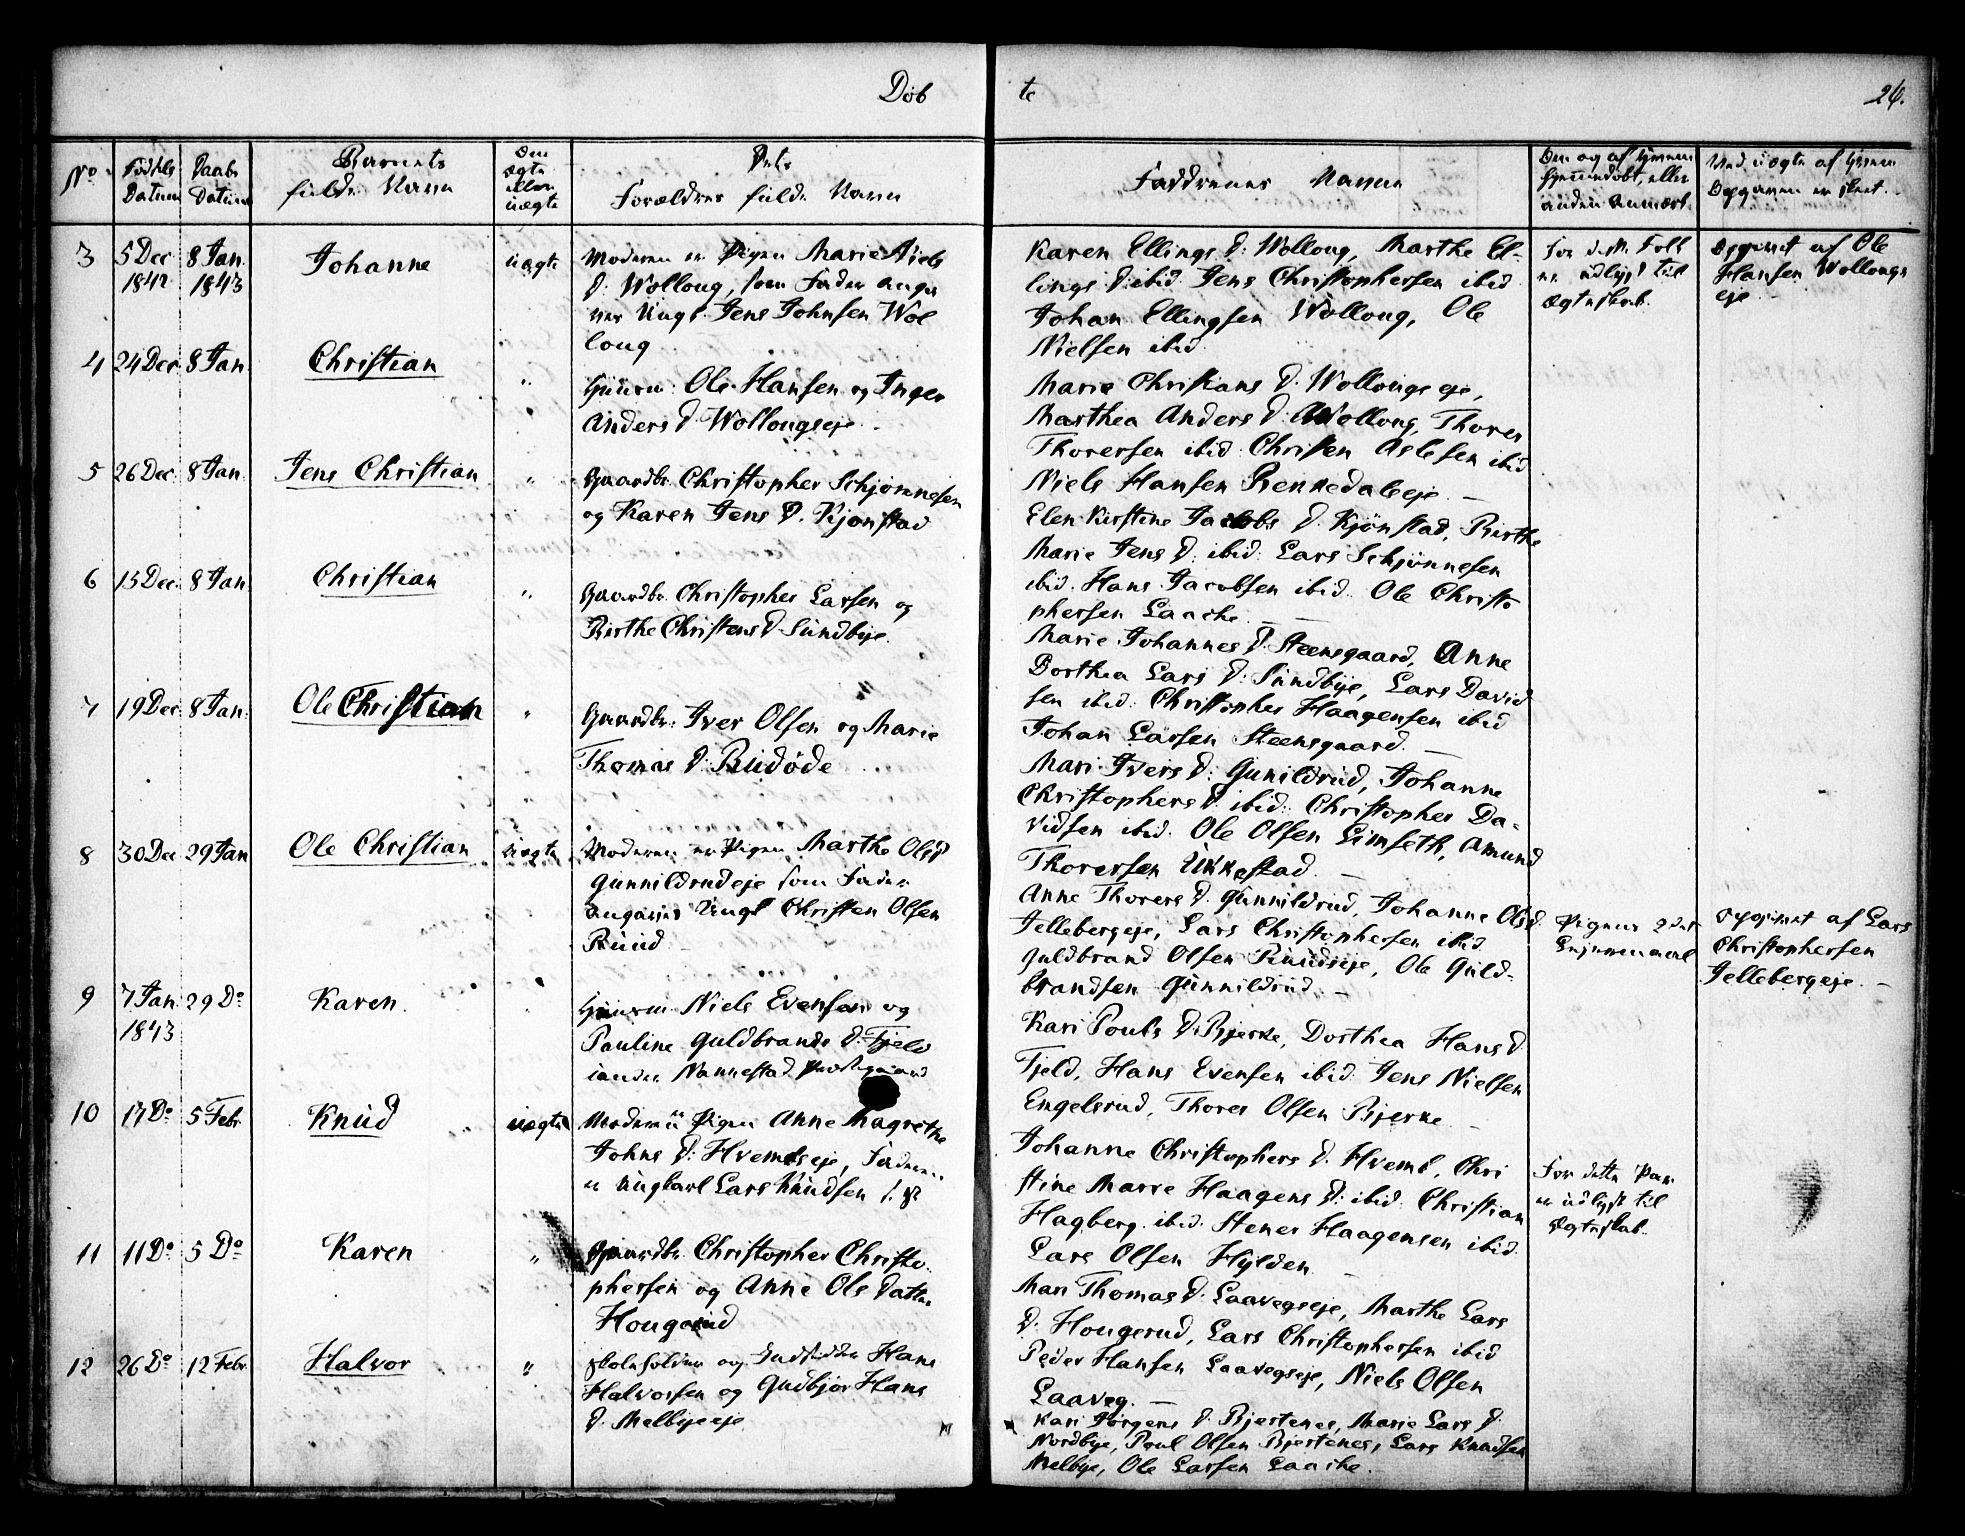 Døb
te
26.
No
Fødsels
Datum
Daabs
Datum
Barnets
fulde Navn
Om
ægte
eller
uægte
Dets
Forældres fulde Navn
Faddrenes Navne
Om og af hvem
hjemmedøbt, eller
anden Anmærk
Ved uægte af hvem
Opgaven er skeet.
3
5 Dec
1842
8 Jan
1843
Johanne
uægte
Moderen er Pigen Marie Niels
D. Wolloug, som Fader angi
ves Ungk. Jens Johnsen Wol
loug
Karen Ellings D: Wolloug, Marthe El-
lings D: ibid Jens Christophersen ibid
Johan Ellingsen Wolloug, Ole
Nielsen ibid
For d. M. Folk
er udlyst til
Ægteskab.
Opgivet af Ole
Hansen Wollougs
eje
4
24 Dec
8 Jan
Christian
"
Huusm: Ole Hansen og Inger
Anders D Wollougseje.
Marie Christians D. Wollougs eje,
Marthea Anders D: Wolloug, Thores
Thoresen ibid. Christen Aslesen ibid
Niels Hansen Bennedaleeje. —
5
26 Dec
8 Jan
Jens Christian
"
Gaardbr. Christopher Schjønnesen
og Karen Jens D. Kjønstad
Elen Kirstine Jacobs D. Kjönstad, Birthe
Marie Jens D. ibid: Lars Schjønnesen
ibid. Hans Jacobsen ibid. Ole Christo
phersen Laache. —
6
15 Dec
8 Jan
Christian
"
Gaardbr. Christopher Larsen og
Birthe Christens D Sundbye.
Marie Johannes D. Steensgaard, Anne
Dorthea Lars D: Sundbye, Lars David
sen ibid: Christopher Haagensen ibid
Johan Larsen Steensgaard. —
7
19 Dec
8 Jan
Ole Christian
"
Gaardbr: Iver Olsen og Marie
Thomas D: Rudøde
Mari Ivers D: Gunildrud, Johanne
Christophers D. ibid: Christopher Da-
vidsen ibid. Ole Olsen Limseth, Amund
Thoresen Ukkestad. —
8
30 Dec
29 Jan
Ole Christian
uægte
Moderen er Pigen Marthe Ols D
Gunnildrudeje som Fader
angives Ungk Christen Olsen
Ruud
Anne Thorers D. Gunnildrud, Johanne Ols D.
Jellebergeje, Lars Christophersen ibid
Guldbrand Olsen Ruudseje, Ole Guld-
brandsen Gunnildrud. —
Pigens 2det
Lejermaal
Opgivet af Lars
Christophersen
Jellebergeje. —
9
7 Jan
1843
29 Do
Karen.
"
Huusm. Niels Evensen og
Pauline Guldbrands D. Fjeld
under Nannestad Præstegaard
Kari Pouls D: Bjerke, Dorthea Hans D
Fjeld, Hans Evensen ibid. Jens Nielsen
Engelsrud, Thores Olsen Bjerke
10
17 Do
5 Febr.
Knud
uægte
Moderen Pigen Anne Magrethe
Johns D: Hvemseje, Faderen
er Ungkarl Lars Knudsen
Johanne Christophers D. Hvemb, Chri
stine Marie Haagens D: ibid. Christian
Hagberg ibid. Stener Haagensen ibid.
Lars Olsen Hylden
For dette Par
er udlyst til
Ægteskab.
11
11 Do
5 Do
Karen
"
Gaardbr. Christopher Christo
phersen og Anne Ols Datter
Hougerud
Mari Thomas D. Laavegseje, Marthe Lars
D: Hougerud, Lars Christophersen ibid
Peder Hansen Laavegseje, Niels Olsen
Laaveg. —
12
26 Do
12 Febr.
Halvor
"
og Indsidder Hans
Halvorsen og Gudbjor Hans
D. Melbyeeje
Kari Jørgens D. Bjertenes, Marie Lars D
Nordbye, Poul Olsen Bjertenes, Lars Knudsen
Melbye, Ole Larsen Laache.